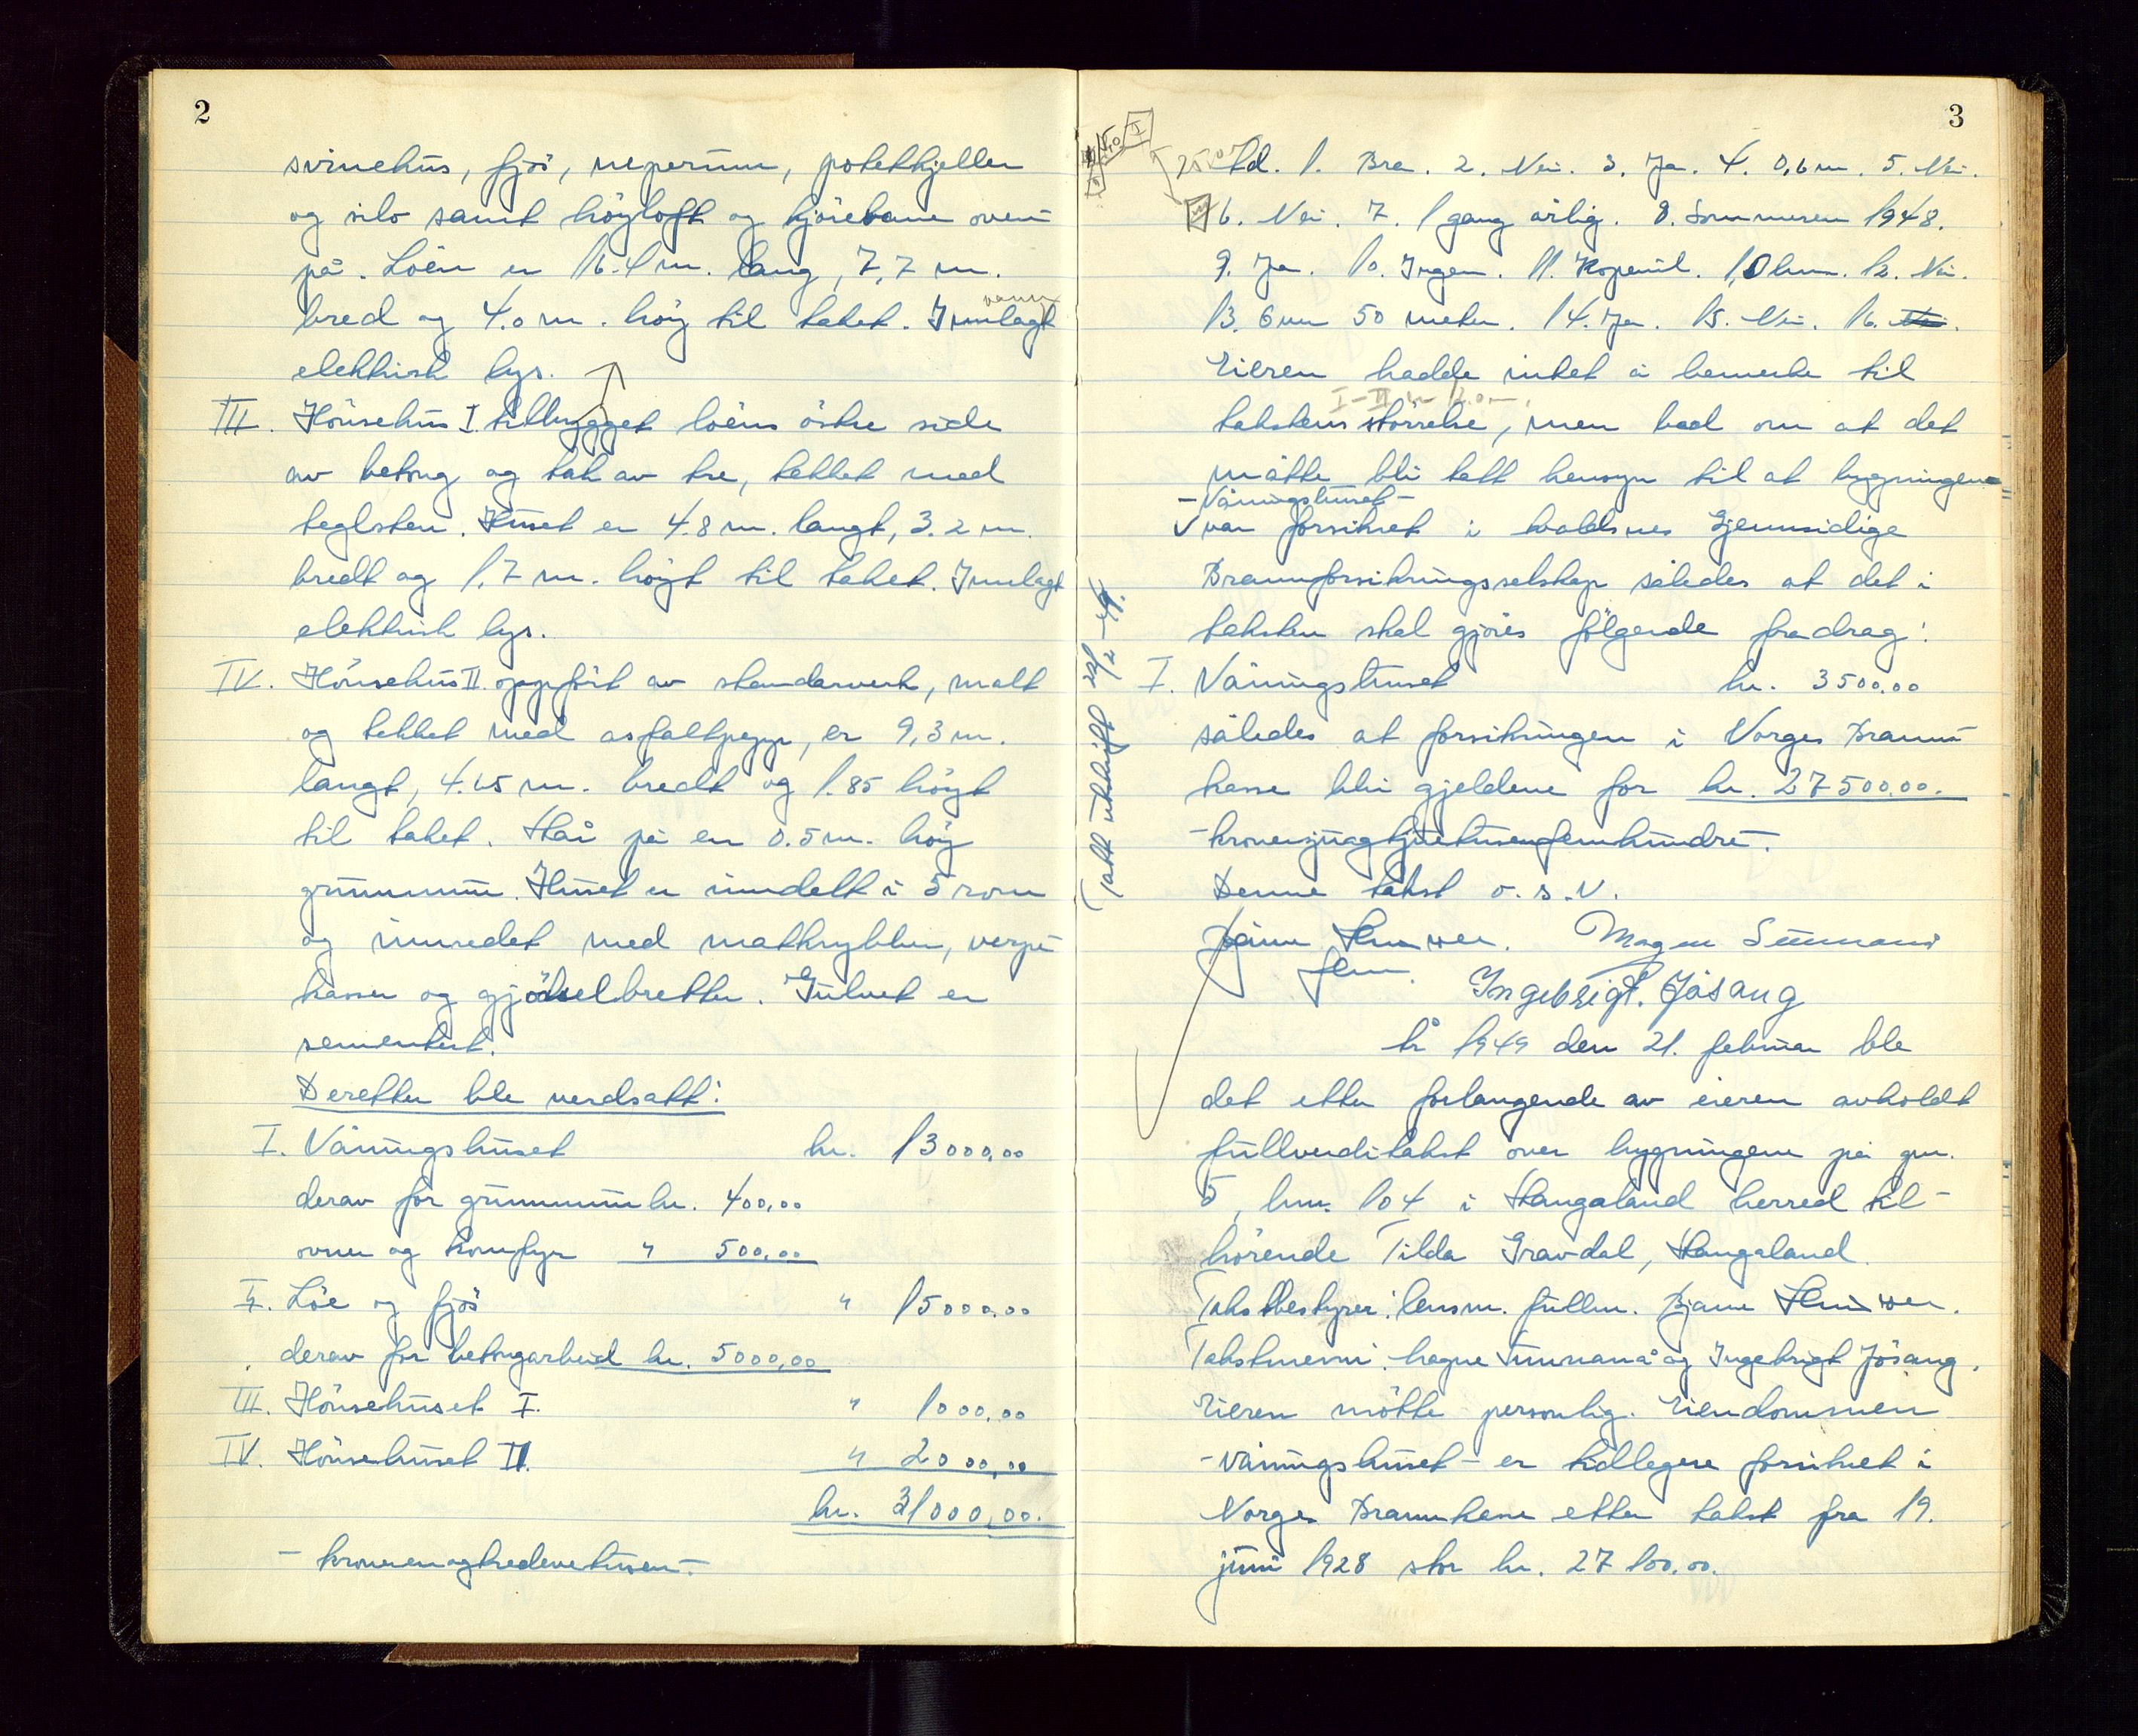 2
svinehus, fjös, neperum, potetkjeller
og silo samt höyloft og kjörebane oven
på. Löen er 16.4 m. lang, 7,7 m.
vann
bred og 4.0 m. höy til taket. Innlagt
elektrisk lys.
III. Hönsehus I. tilbygget löens östre side
av betong og tak av tre, tekket med
teglsten. Huset er 4.8 m. langt, 3.2 m.
bredt og 1.7 m. höyt til taket. Innlagt
elektrisk lys.
IV. Hönsehus II. oppfört av standarverk, malt
og tekket med asfaltpapp, er 9,3 m.
langt, 4.65 m. bredt og 1.85 höyt
til taket. Står på en 0.5 m. höy
grunnmur. Huset er inndelt i 5 rom
og innredet med matkrybber, verpe
kasser og gjödselbretter. Gulvet er
sementert.
Deretter ble verdsatt:
I. Våningshuset kr. 13000,00
derav for grunnmur kr. 400,00
ovner og komfyr " 500,00
II. Löe og fjös " 15000,00
derav for betongarbeid kr. 5000,00
III. Hönsehuset I. " 1000,00
IV. Hönsehuset II. " 2000,00
kr. 31000,00.
- kronerenogtredevetusen -
3
td. 1. Bra. 2. Nei. 3. Ja. 4. 0,6 m. 5. Nei.
6. Nei. 7. 1 gang årlig. 8. Sommeren 1948.
9. Ja. 10. Ingen. 11. Kopervik. 10 km. 12. Nei.
13. 6 mm 50 meter. 14. Ja. 15. Nei. 16. Nei.
Eieren hadde intet å bemerke til
I-II
takstens störrelse, men bad om at det
måtte bli tatt hensyn til at bygningene
- Våningshuset -
var forsikret i Avaldsnes Gjensidige
Brannforsikringsselskap således at det i
taksten skal gjöres fölgende fradrag:
I. Våningshuset kr. 3500.00
således at forsikringen i Norges Brann
kasse bli gjeldene for kr. 27500.00.
- kronersjuogtjuetusenfemhundre -.
Denne takst o.s.v.
Magne Simonsen
Ingebrigt. Jösang
År 1949 den 21. februar ble
det etter forlangende av eieren avholdt
fullverditakst over bygningene på gnr.
5, bnr. 104 i Stangaland herred til-
hörende Tilda Gravdal, Stangaland.
Takstbestyrer: lensm. fullm. Bjarne
Takstmenn: og Ingebrigt Jösang.
Eieren mötte personlig. Eiendommen
- våningshuset - er tidligere forsikret i
Norges Brannkasse etter takst fra 19.
juni 1928 stor kr. 27100.00.
Tatt utskrift